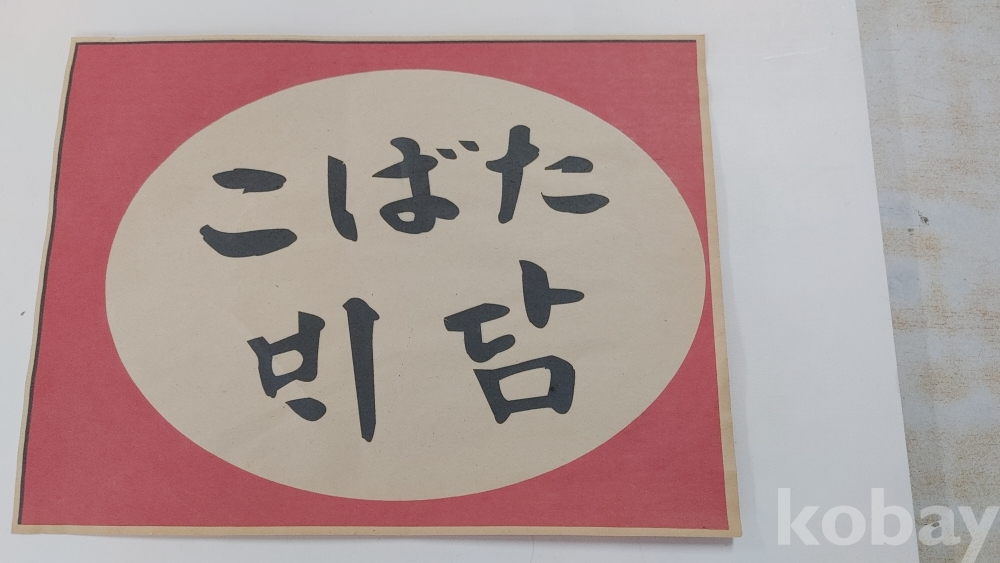 こばた
ᄇᆡ담
kobay